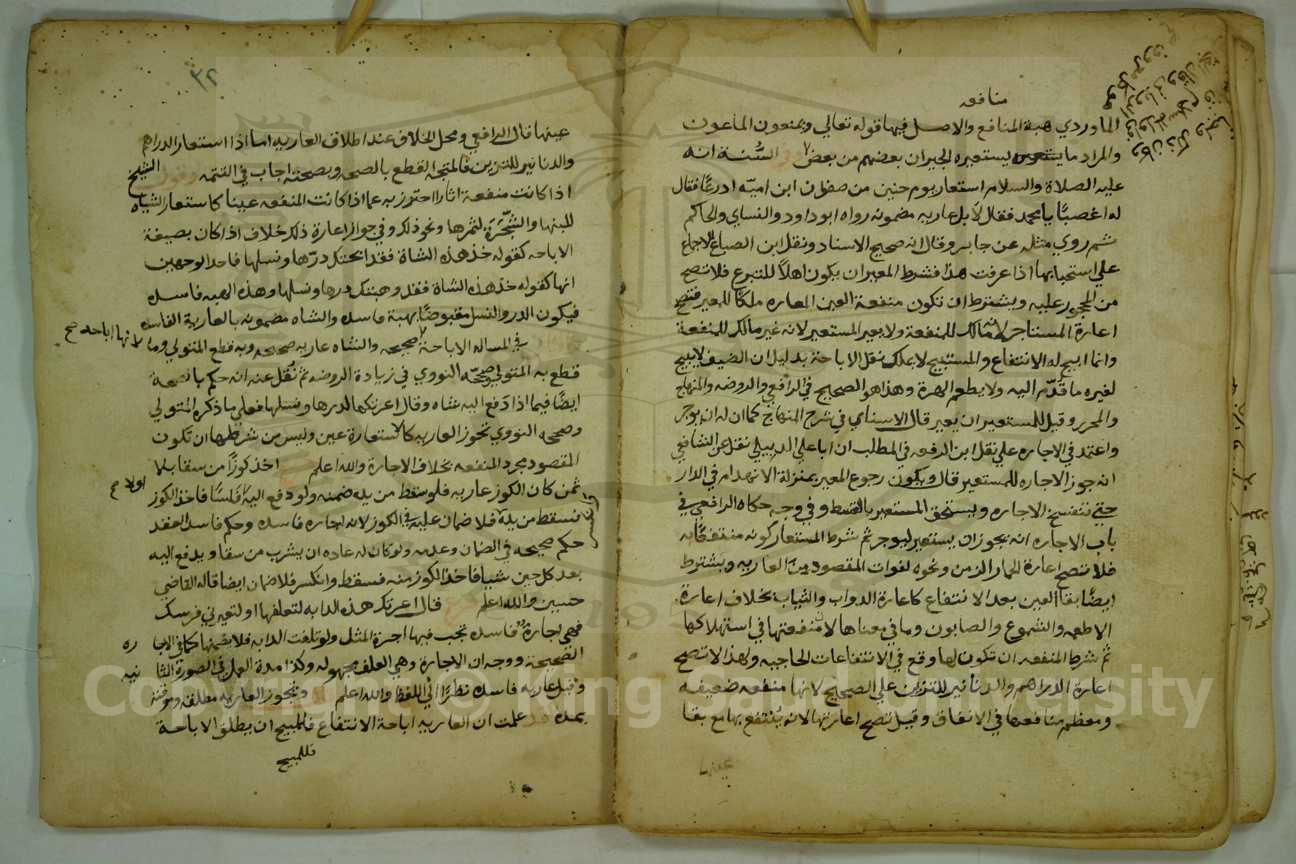 منافعه
الماوردي هبة المنافع والاصل فيها قوله تعالي ويمنعون الماعون
والمراد ما يستعيره الجيران بعضهم من بعض وفي السنة انه
عليه الصلاة والسلام استعار يوم حنين من صفوان ابن اميه ادرعًا فقال
له اغصبًا يا محمد فقال لا بل عاريه مضمونه رواه ابو داود والنساي والحاكم
ثم روي مثله عن جابر وقال انه صحيح الاسناد ونقل ابن الصباغ الاجماع
علي استحبابها اذا عرفت هذا فشرط المعير ان يكون اهلاً للتبرع فلا تصح
من المحجور عليه ويشترط ان تكون منفعة العين المعاره ملكًا للمعير فتصح
اعارة المستاجر لانه مالك للمنفعة ولا يعير المستعير لانه غير مالك للمنفعة
وانما ابيح له الانتفاع والمستبيح لا يملك نقل الاباحة بدليل ان الضيف لا يبيح
لغيره ما قدم اليه ولا يطعم الهرة وهذا هو الصحيح في الرافعي والروضه والمنهاج
والمحرر وقيل للمستعير ان يعير قال الاسناي في شرح المنهاج كما ان له ان يوجر
واعتمد في الاجاره علي نقل ابن الرفعه في المطلب ان ابا علي الدبيلي نقل عن الشافعي
انه جوز الاجاره للمستعير قال ويكون رجوع المعير بمنزلة الانهدام في الدار
حتي تنفسخ الاجاره ويستحق المستعير بالقسط وفي وجه حكاه الرافعي في
باب الاجاره انه يجوز ان يستعير ليوجر ثم شرط المستعار كونه منتفعًا به
فلا تصح اعارة الحمار الزمن ونحوه لفوات المقصود من العاريه ويشترط
ايضًا بقا العين بعد الانتفاع كاعارة الدواب والثياب بخلاف اعارة
الاطعمه والشموع والصابون وما في معناها لان منفعتها في استهلاكها
ثم شرط المنفعه ان تكون لها وقع في الانتفاعات الحاجيه ولهذا لا تصح
اعارة الدراهم والدنانير للتزين علي الصحيح لانها منفعه ضعيفه
ومعظم منافعها في الانفاق وقيل تصح اعارتها لانه ينتفع بها مع بقا
عينها
٣٢
عينها قال الرافعي ومحل الخلاف عند اطلاق العاريه اما اذا استعار الدراهم
والدنانير للتزين فالمتجه القطع بالصحه وبصحته اجاب في التتمه وقول الشيخ
اذا كانت منفعة اثارا احترز به عما اذا كانت المنفعه عينًا كاستعار الشياه
للبنها والشجرة لثمرها ونحو ذلك وفي جواز اعارة ذلك خلاف اذا كان بصيغة
الاباحه كقوله خذ هذه الشاة فقد ابحتك درها ونسلها فاحد الوجهين
انها كقوله خذ هذه الشاة فقد وهبتك درها ونسلها وهذه الهبه فاسده
فيكون الدر والنسل مقبوضًا بهبة فاسده والشاه مضمونه بالعارية الفاسده
في المساله الاباحة صحيحه والشاه عاريه صحيحه وبه قطع المتولي وما
لانها اباحه صح
قطع به المتولي صححه النووي في زيادة الروضه ثم نقل عنه انه حكم بالصحة
ايضًا فيما اذا دفع اليه شاه وقال اعرتكها لدرها ونسلها فعلي ما ذكره المتولي
وصححه النووي تجوز العاريه كالاستعارة عين وليس من شرطها ان تكون
المقصود مجرد المنفعه بخلاف الاجارة والله اعلم اخذ كوزًا من سقا بلا
ثمن كان الكوز عاريه فلو سقط من يده ضمنه ولو دفع اليه فلسًا فاخذ الكوز
اولا صح
فسقط من يده فلا ضمان عليه في الكوز لانه اجاره فاسده وحكم فاسد العقد
حكم صحيحه في الضمان وعدمه ولو كان له عاده ان يشرب من سقا ويدفع اليه
بعد كل حين شيا فاخذ الكوز منه فسقط وانكسر فلا ضمان ايضا قاله القاضي
حسين والله اعلم قال اعرتك هذه الدابه لتعلفها او لتعيرني فرسك
فهي اجارة فاسده تجب فيها اجرة المثل ولو تلفت الدابه فلا يضمنها كما في الاجا ره
الصحيحة ووجه ان الاجارة وهي العلف مجهوله وكذا مدة العمل في الصورة الثا نيه
وقيل عاريه فاسده نظرًا الي اللفظ والله اعلم وتجوز العاريه مطلقه وموقته
بمده قد علمت ان العاريه اباحة الانتفاع فللمبيح ان يطلق الاباحة
فللمبيح
Copyright © King Saud University